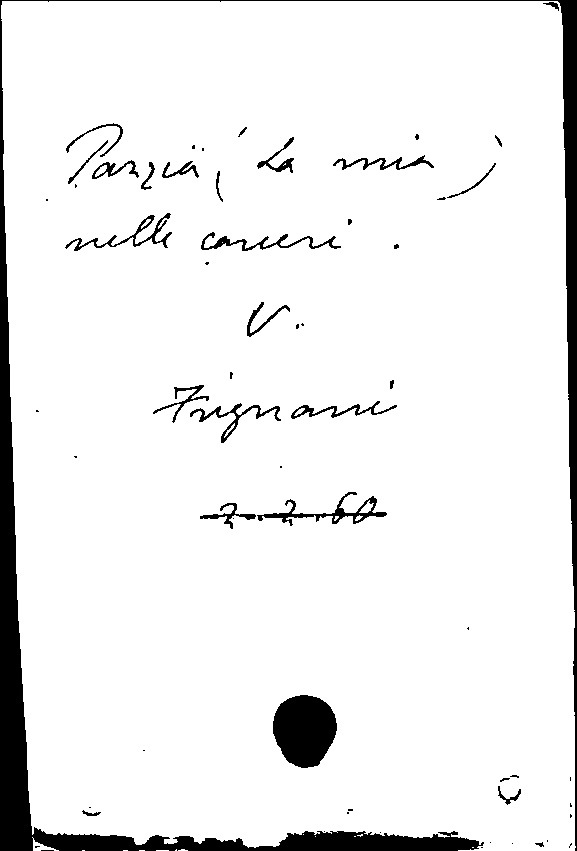 Pazzia (La mia)
nelle carceri.
V.
Frignani
2.2.60